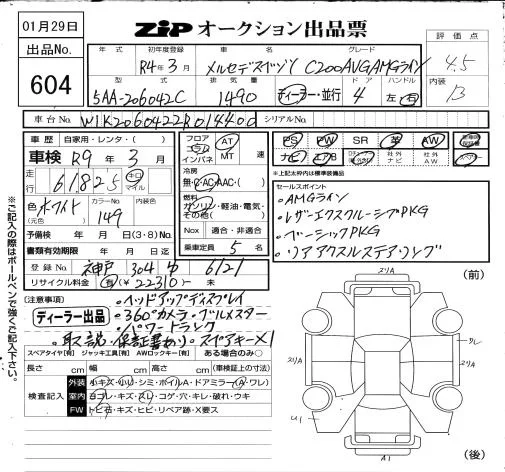 01月29日
出品No.
604
ZiP オークション出品票
評価点
4.5
内装
B
年式 初年度登録 車名 グレード
R4年3月 メルセデスベンツ C200AVGAMGライン
型式 排気量 ドア ハンドル
5AA-206042C 1490 ディーラー・並行 4 左・右
車台No. W1K2060422R014400 シリアルNo.
車歴 自家用・レンタ・( )
車検 R9年3月
走行 61825 km マイル
色 ホワイト カラーNo. 149 内装色
(元色)
予備検 年 月 日(3・8)Mo.
書類有効期限 年 月 日
登録No. 神戸 304 ゆ 6121
リサイクル料金 (有)(¥22310-) 未
フロア コラム インパネ AT MT 速
冷房
無・C・AC・AAC・( )
燃料
ガソリン・軽油・電気・その他( )
Nox 適合・非適合
乗車定員 5 名
PS PW SR 革 AW
ナビ エアB 社外ナビ 社外AW
※上記太枠内は標準装備品
セールスポイント
・AMGライン
・レザーエクスクルーシブPKG
・ベーシックPKG
・リアアクスルステアリング
(注意事項)
ディーラー出品
・ヘッドアップディスプレイ
・360°カメラ・ブルメスター
・パワートランク
・取説・保証書有り・スペアキー×1
スペアタイヤ[有] ジャッキ工具[有] AWロックキー[有] ある場合のみ○
長さ cm 幅 cm 高さ cm (車検証上の寸法)
検査記入
外装 小キズ・小U・シミ・ボイルA・ドアミラー(A・ワレ)
室内 ヨゴレ・キズ・スレ・コゲ・穴・キレ・破れ・ウキ
FW トビ石・キズ・ヒビ・リペア跡・X要ス
※ご記入の際はボールペンで強くご記入下さい。
(前)
2リA
2リA
2リA
U1
A1
(後)